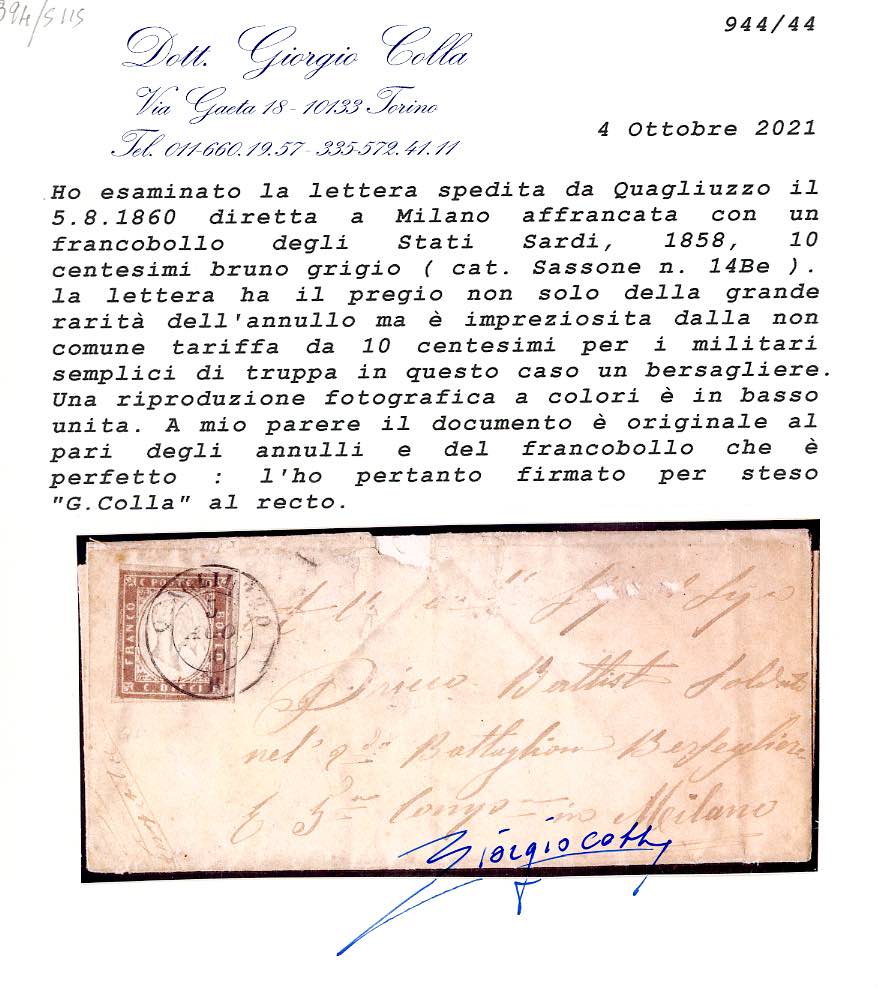 944/44
Dott. Giorgio Colla
Via Gaeta 18 - 10133 Torino
Tel. 011-660.19.57 - 335-572.41.11
4 Ottobre 2021
Ho esaminato la lettera spedita da Quagliuzzo il
5.8.1860 diretta a Milano affrancata con un
francobollo degli Stati Sardi, 1858, 10
centesimi bruno grigio ( cat. Sassone n. 14Be ).
la lettera ha il pregio non solo della grande
rarità dell'annullo ma è impreziosita dalla non
comune tariffa da 10 centesimi per i militari
semplici di truppa in questo caso un bersagliere.
Una riproduzione fotografica a colori è in basso
unita. A mio parere il documento è originale al
pari degli annulli e del francobollo che è
perfetto : l'ho pertanto firmato per steso
"G.Colla" al recto.
C POSTE
FRANCO
BOLLO
C. DIECI
5
AGO
Battist Soldato
nel Battaglion
in Milano
Giorgio Colla